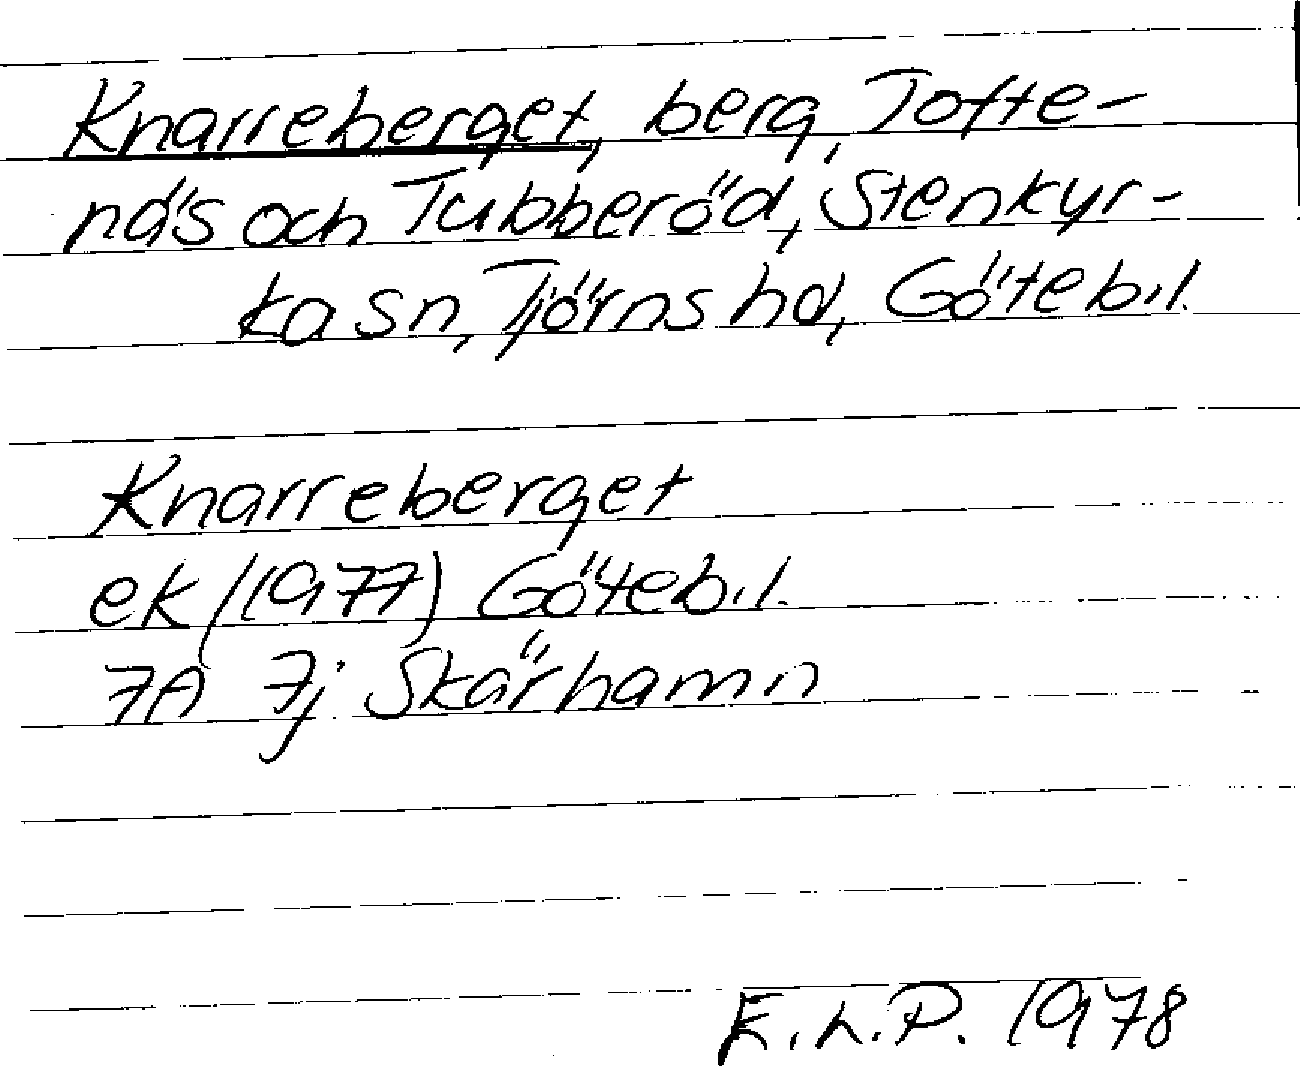 Knarreberget, berg, Tofte-
näs och Tubberöd, Stenkyr-
ka sn, Tjörns hd, Göteb.l.
Knarreberget
ek (1977) Göteb.l.
7A 7j Skärhamn
E.L.P. 1978